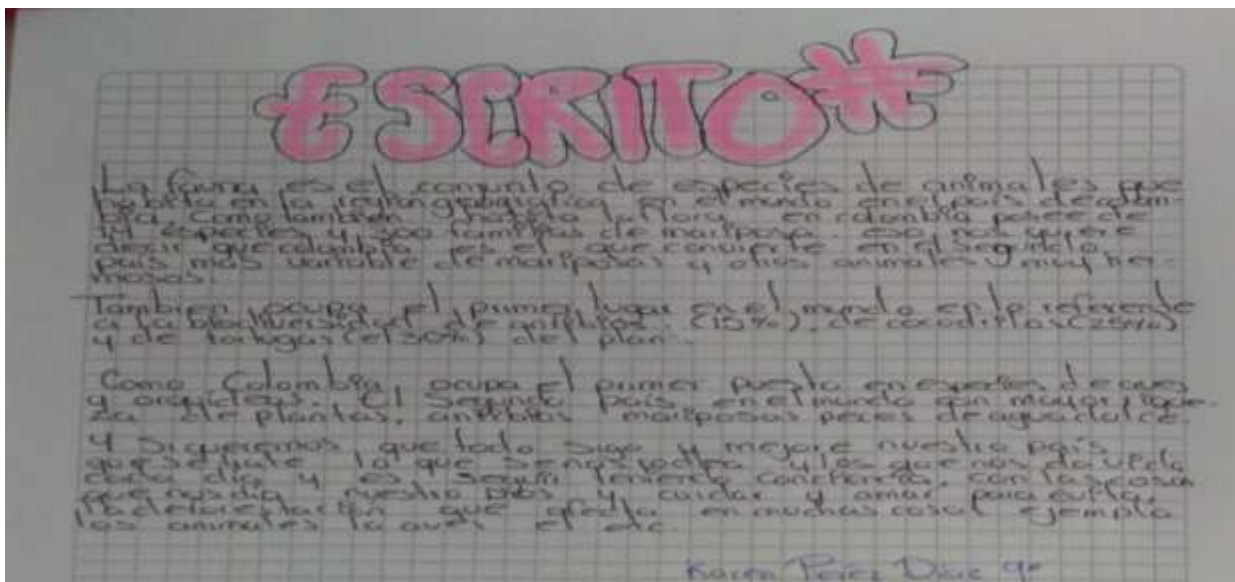 ESCRITO
La fauna es el conjunto de especies de animales que
habita en la region geografica en el mundo en el pais de colom-
bia. Como tambien la flora en colombia posee de
especies y 300 familias de mariposa. Eso nos quiere
decir que colombia es el que convierte en el segundo
pais mas variable de mariposas y otros animales muy her-
mosos.
Tambien ocupa el primer lugar en el mundo en lo referente
a la biodiversidad de anfibios (15%), de cocodrilos (25%)
y de tortugas (el 20%) del plan
Como Colombia, ocupa el primer puesto en especies de aves
y orquideas. El segundo pais en el mundo con mayor rique-
za de plantas, anfibios mariposas peces de agua dulce.
y si queremos que todo siga y mejore nuestro pais
que lo que se nos y los que nos da
cada dia y es seguir teniendo conciencia, con las cosas
que nos da nuestro pais y cuidar y amar para evitar
la deforestacion que afecta en muchas cosas ejemplo
los animales la aves etc.
Karen Perez Diaz 9°